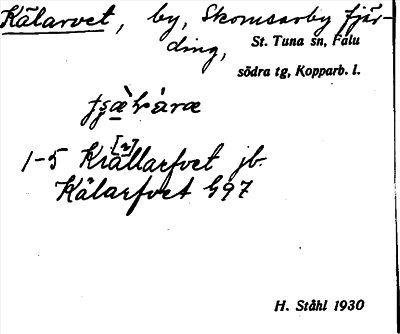 Kälarvet, by, Skomsarby fjär-
ding, St. Tuna sn, Falu
södra tg, Kopparb. l.
1-5 Krällarfvet jb
[?]
Kälarfvet G97
H. Ståhl 1930